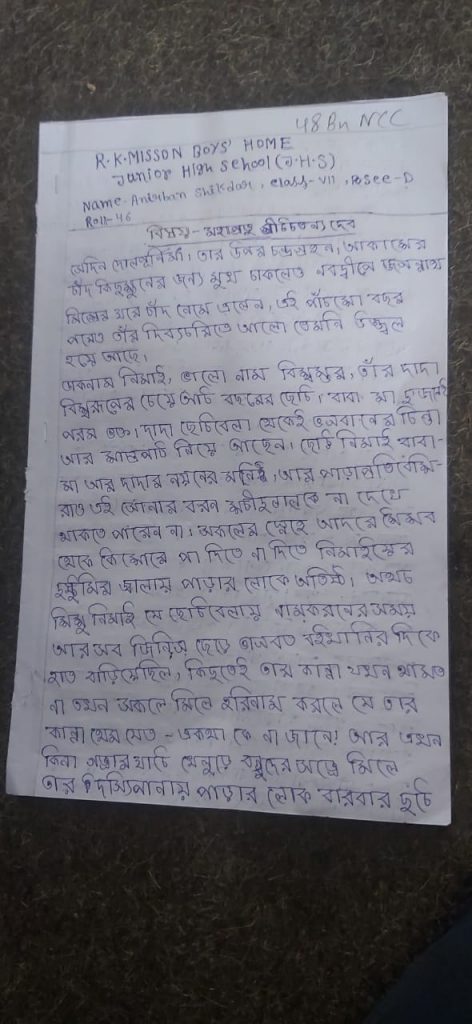 48 Bn NCC
R.K.MISSON BOYS' HOME
Junior High School (J.H.S)
Name- Anirban Shikdar, Class-VII, Sec-D
Roll-46
বিষয় - মহাপ্রভু শ্রীচৈতন্য দেব
সেদিন দোলপূর্ণিমা, তার উপর চন্দ্রগ্রহন, আকাশের
চাঁদ কিছুক্ষনের জন্য মুখ ঢাকলেও নবদ্বীপে জগন্নাথ
মিশ্রের ঘরে চাঁদ নেমে এলেন, এই পাঁচশো বছর
পরেও তাঁর দিব্যচরিতে আলো তেমনি উজ্জ্বল
হয়ে আছে।
ডাকনাম নিমাই, ভালো নাম বিশ্বম্ভর, তাঁর দাদা
বিশ্বরূপের চেয়ে আট বছরের ছোট। বাবা মা দুজনেই
পরম ভক্ত। দাদা ছোটবেলা থেকেই ভগবানের চিন্তা
আর শাস্ত্রপাঠ নিয়ে আছেন। ছোট নিমাই বাবা-
মা আর দাদার নয়নের মনি, আর পাড়াপ্রতিবেশি-
রাও এই সোনার বরন শচীদুলালকে না দেখে
থাকতে পারেন না। সকলের স্নেহে আদরে শৈশব
থেকে কৈশোরে পা দিতে না দিতে নিমাইয়ের
দুষ্টুমির জ্বালায় পাড়ার লোকে অতিষ্ঠ। অথচ
শিশু নিমাই যে ছোটবেলায় নামকরনের সময়
আর সব জিনিস ছেড়ে ভাগবত বইখানির দিকে
হাত বাড়িয়েছিল, কিছুতেই তার কান্না যখন থামত
না তখন সকলে মিলে হরিনাম করলে সে তার
কান্না থেমে যেত - একথা কে না জানে? আর এখন
কিনা পাড়ার বন্ধুদের সঙ্গে মিলে
তার দস্যিপানায় পাড়ার লোক বারবার ছুটে